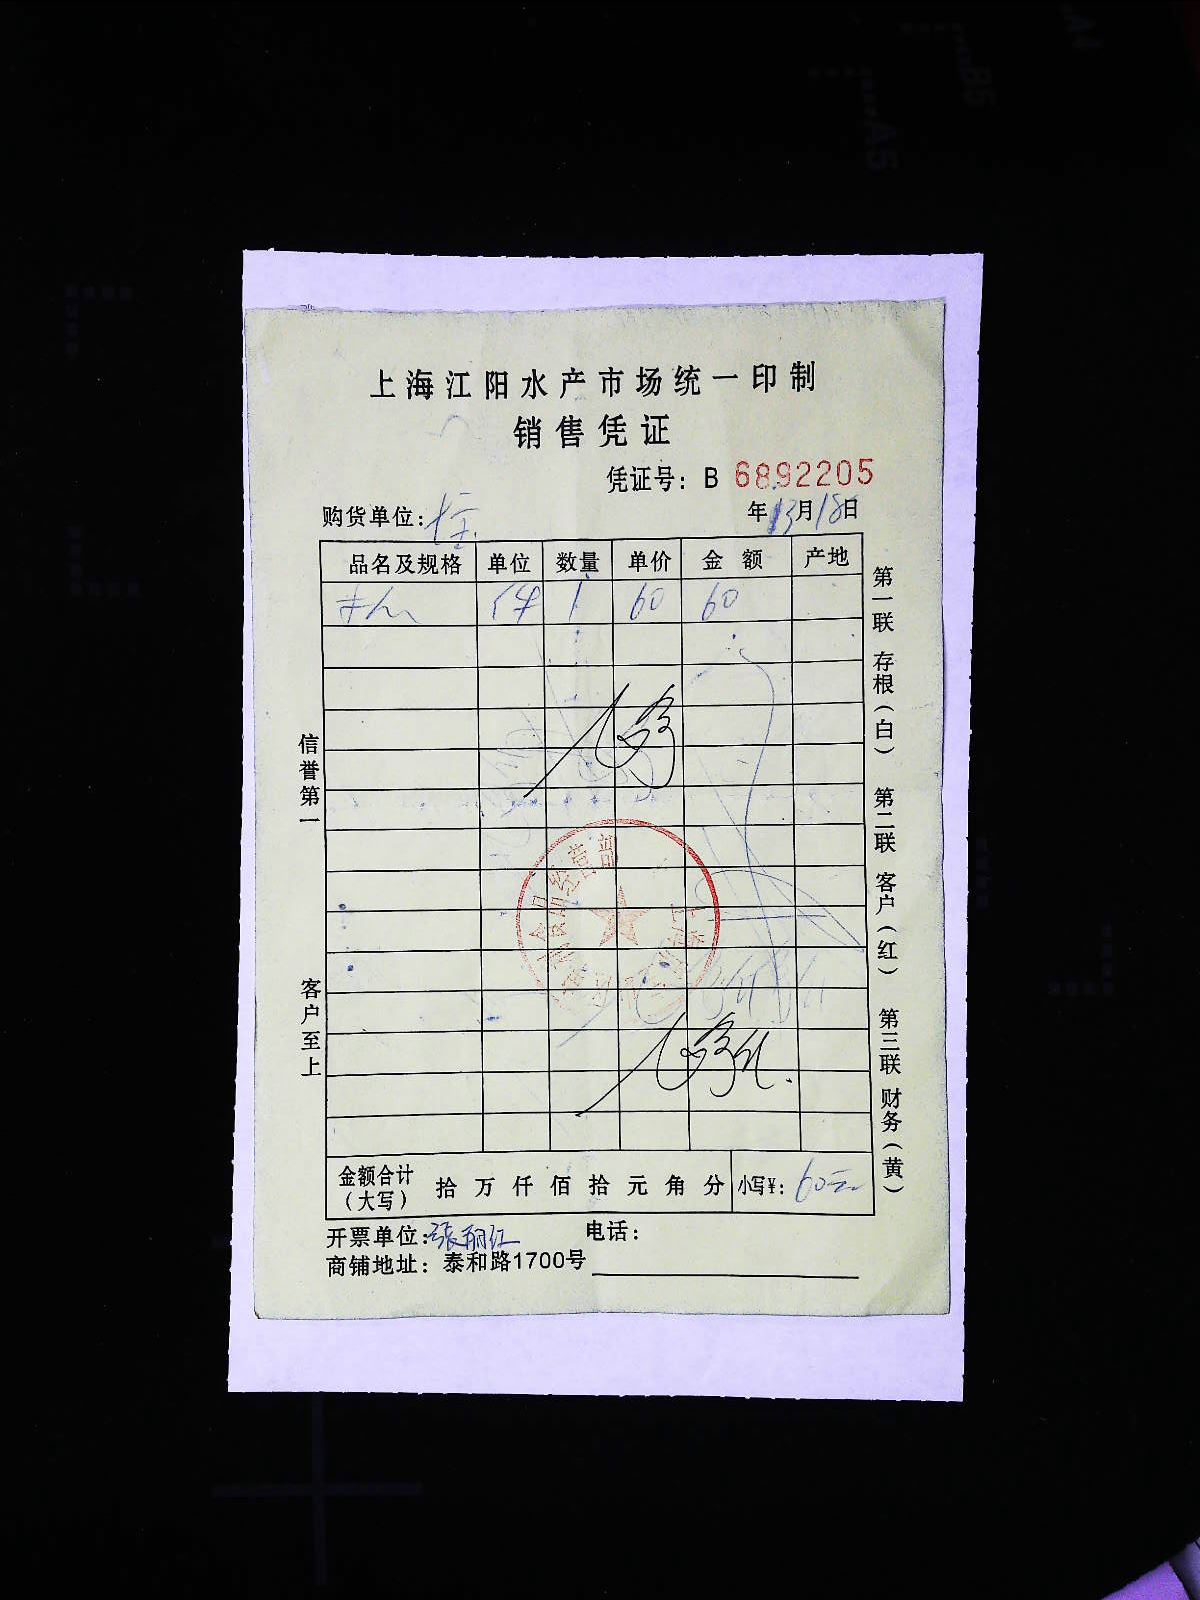 上海江阳水产市场统一印制
销售凭证
凭证号：B 6892205
购货单位： 年 月18日
品名及规格 单位 数量 单价 金额 产地
件 1 60 60
信誉第一
客户至上
第一联 存根（白） 第二联 客户（红） 第三联 财务（黄）
经营部
金额合计（大写） 拾 万 仟 佰 拾 元 角 分 小写¥：60元
开票单位：张丽红 电话：
商铺地址：泰和路1700号
A4
B5
A5